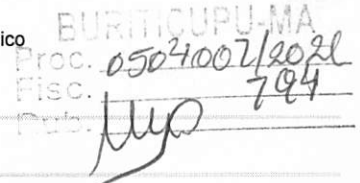 ico
BURITICUPU-MA
Proc. 0504007/2021
Fisc. 794
Rub.